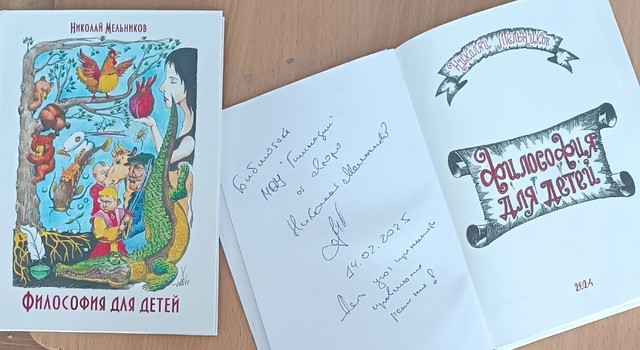 Николай Мельников
Философия для детей
Библиотеке
МОУ "Гимназия"
от автора
Николая Мельникова
14.02.2025
Николай Мельников
Философия
для детей
2024